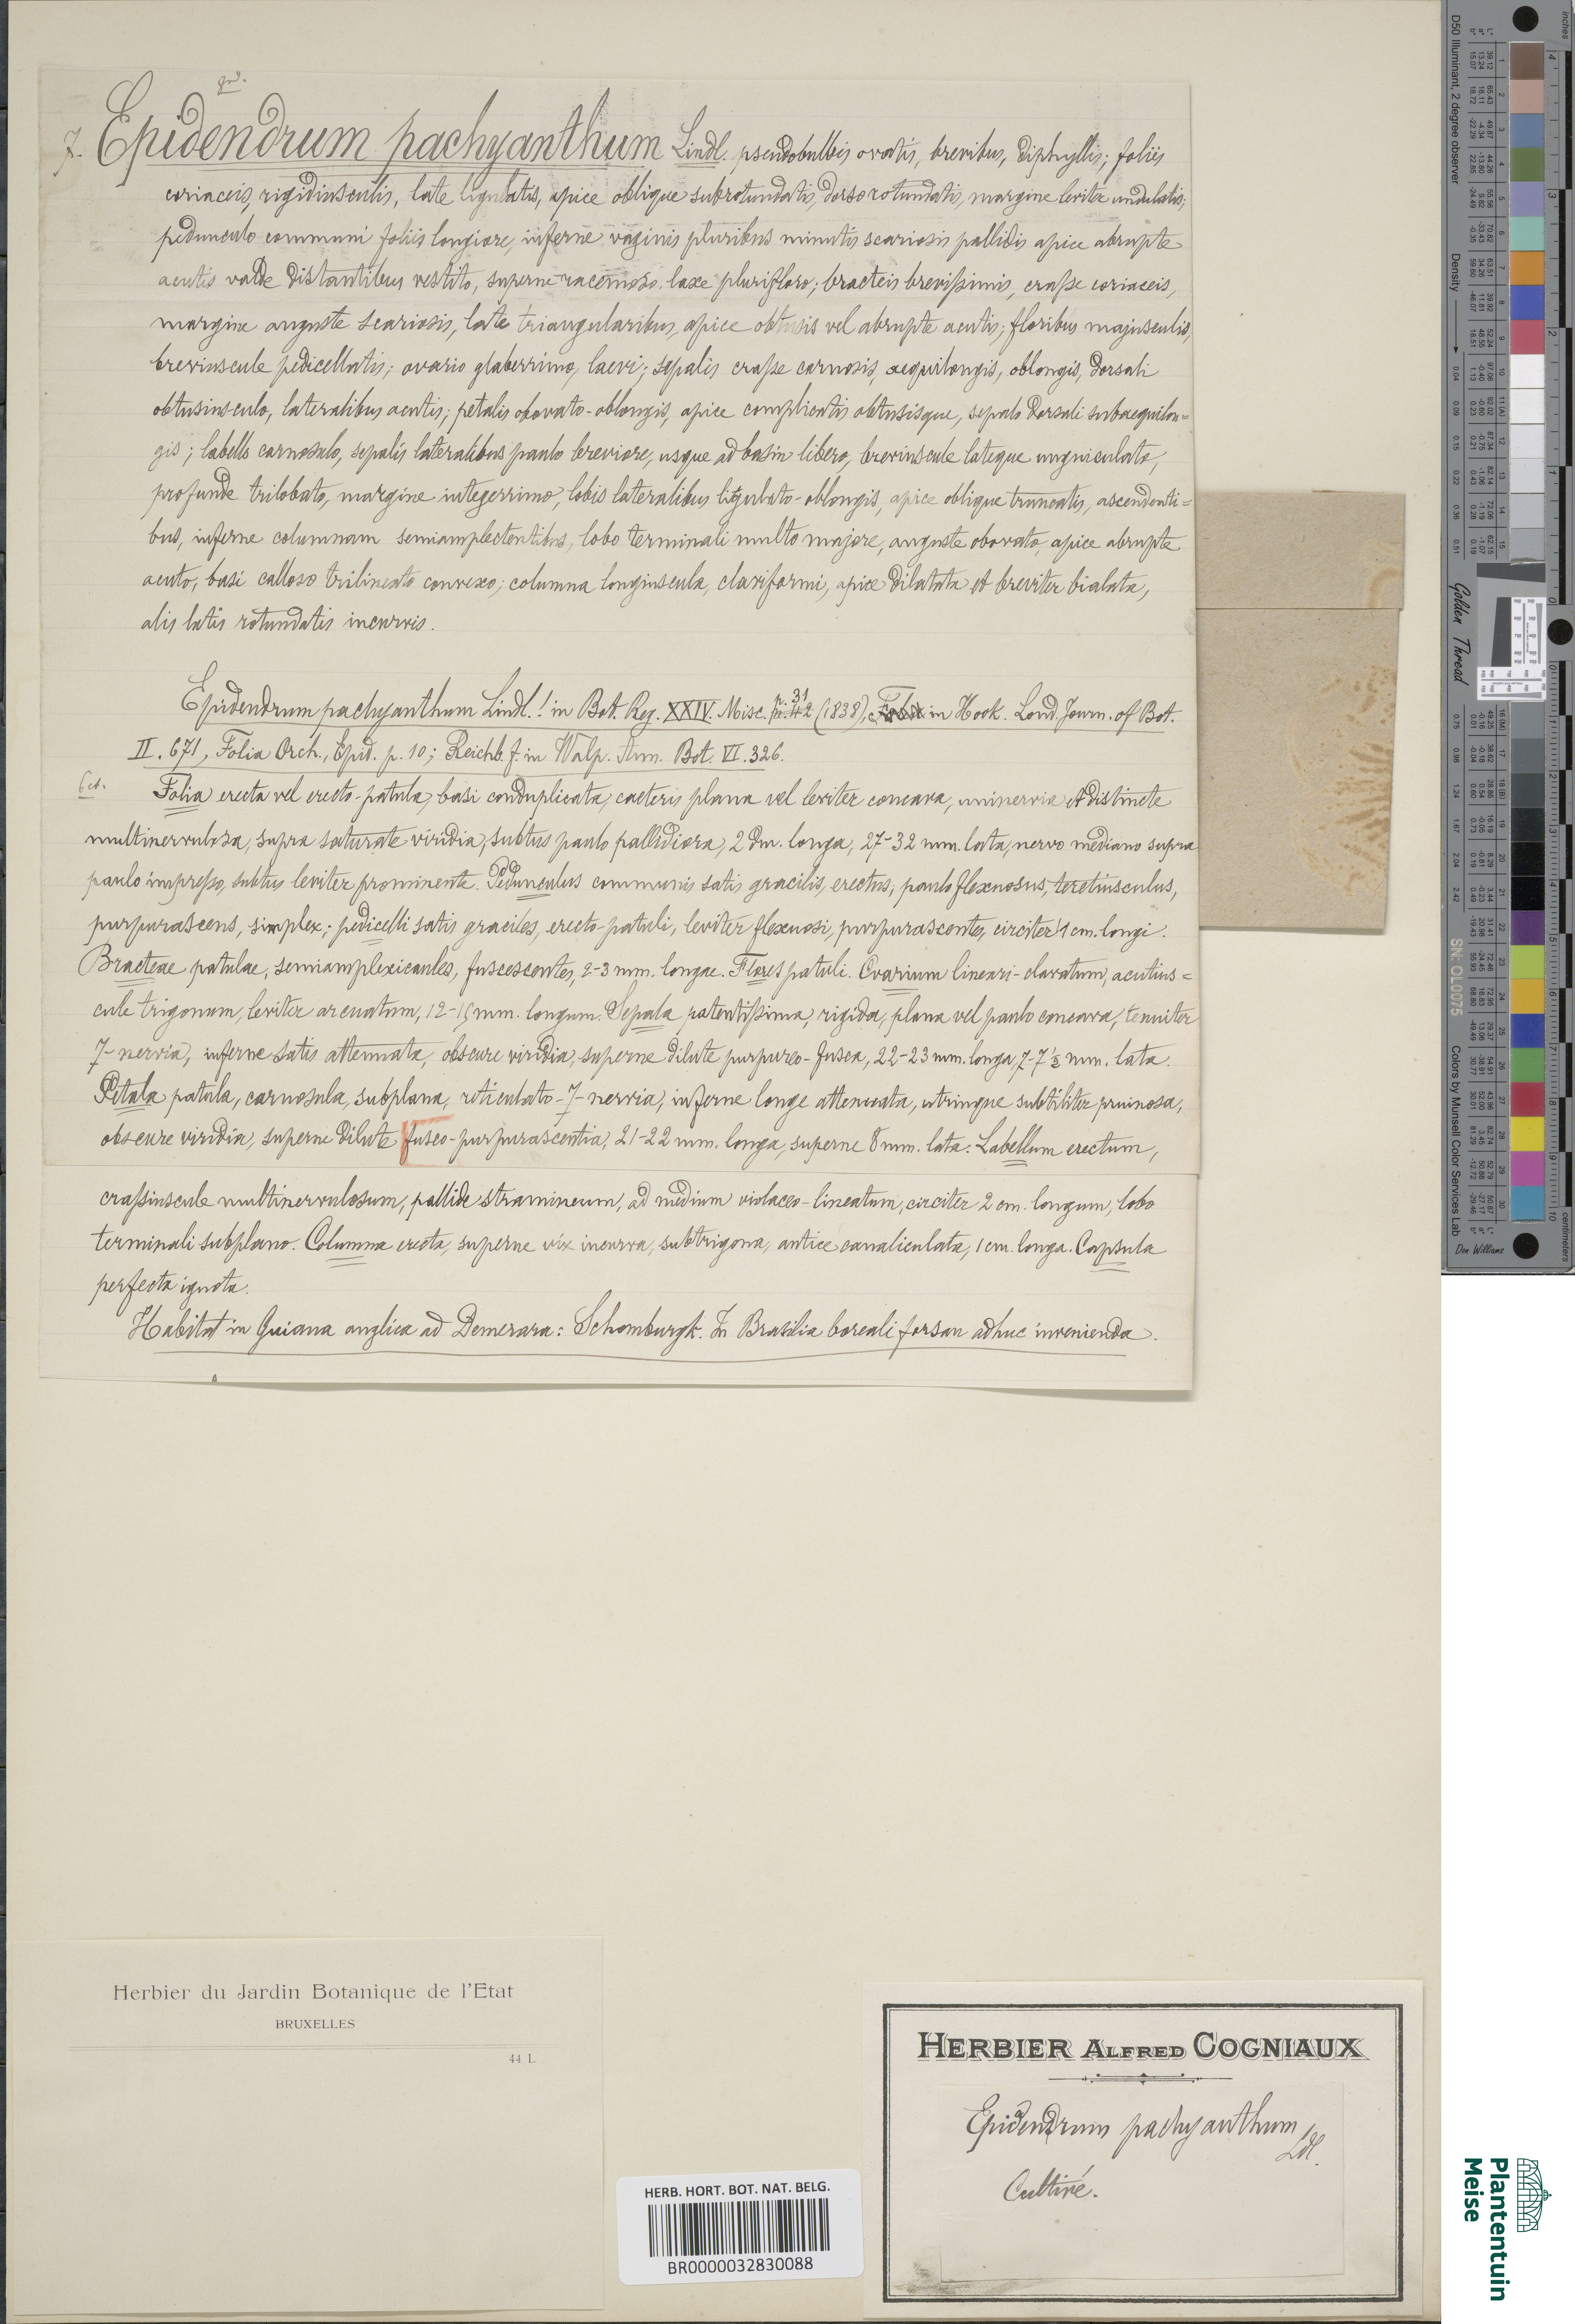 grd.
7. Epidendrum pachyanthum Lindl. pseudobulbis ovatis, brevibus, diphyllis; foliis
coriaceis, rigidiusculis, late ligulatis, apice oblique subrotundatis, dorso rotundatis, margine leviter undulatis;
pedunculo communi foliis longiore, inferne vaginis pluribus minutis scariosis pallidis apice abrupte
acutis valde distantibus vestito, superne racemoso, laxe plurifloro; bracteis brevissimis, crasse coriaceis,
margine anguste scariosis, late triangularibus, apice obtusis vel abrupte acutis; floribus majusculis,
breviuscule pedicellatis; ovario glaberrimo, laevi; sepalis crasse carnosis, aequilongis, oblongis, dorsali
obtusiusculo, lateralibus acutis; petalis obovato-oblongis, apice complicatis obtusisque, sepalo dorsali subaequilon=
gis; labello carnosulo, sepalis lateralibus paulo breviore, usque ad basin libero, breviuscule lateque unguiculato,
profunde trilobato, margine integerrimo, lobis lateralibus ligulato-oblongis, apice oblique truncatis, ascendenti=
bus, inferne columnam semiamplectentibus, lobo terminali multo majore, anguste obovato, apice abrupte
acuto, basi calloso trilineato convexo; columna longiuscula, claviformi, apice dilatata et breviter bialata,
alis latis rotundatis incurvis.
Epidendrum pachyanthum Lindl.! in Bot. Reg. XXIV. Misc. p. 42 n. 31 (1838), in Hook. Lond. Journ. of Bot.
II. 671, Folia Orch., Epid. p. 10; Reichb. f. in Walp. Ann. Bot. VI. 326.
Folia erecta vel erecto-patula, basi conduplicata, caeteris plana vel leviter concava, uninervia et distincte
multinervulosa, supra saturate viridia, subtus paulo pallidiora, 2 dm. longa, 27-32 mm. lata, nervo mediano supra
paulo impresso, subtus leviter prominente. Pedunculus communis satis gracilis, erectus, paulo flexuosus, teretiusculus,
purpurascens, simplex; pedicelli satis graciles, erecto-patuli, leviter flexuosi, purpurascentes, circiter 1 cm. longi.
Bracteae patulae, semiamplexicaules, fuscescentes, 2-3 mm. longae. Flores patuli. Ovarium lineari-clavatum, acutius=
cule trigonum, leviter arcuatum, 12-15 mm. longum. Sepala patentissima, rigida, plana vel paulo concava, tenuiter
7-nervia, inferne satis attenuata, obscure viridia, superne dilute purpureo-fusca, 22-23 mm. longa, 7-7 1/2 mm. lata.
Petala patula, carnosula, subplana, reticulato-7-nervia, inferne longe attenuata, utrinque subtiliter pruinosa,
obscure viridia, superne dilute fusco-purpurascentia, 21-22 mm. longa, superne 8 mm. lata. Labellum erectum,
crassiuscule multinervulosum, pallide stramineum, ad medium violaceo-lineatum, circiter 2 cm. longum, lobo
terminali subplano. Columna erecta, superne vix incurva, subtrigona, antice canaliculata, 1 cm. longa. Capsula
perfecta ignota.
Habitat in Guiana anglica ad Demerara: Schomburgk. In Brasilia boreali forsan adhuc invenienda.
Herbier du Jardin Botanique de l'Etat
BRUXELLES
44 L
HERB. HORT. BOT. NAT. BELG.
BR0000032830088
HERBIER ALFRED COGNIAUX
Epidendrum pachyanthum
Ldl.
Cultivé.
Plantentuin
Meise
inches
centimeters
D50 Illuminant, 2 degree observer
Density
Golden Thread
SN: OL0075
Colors by Munsell Color Services Lab
Don Williams